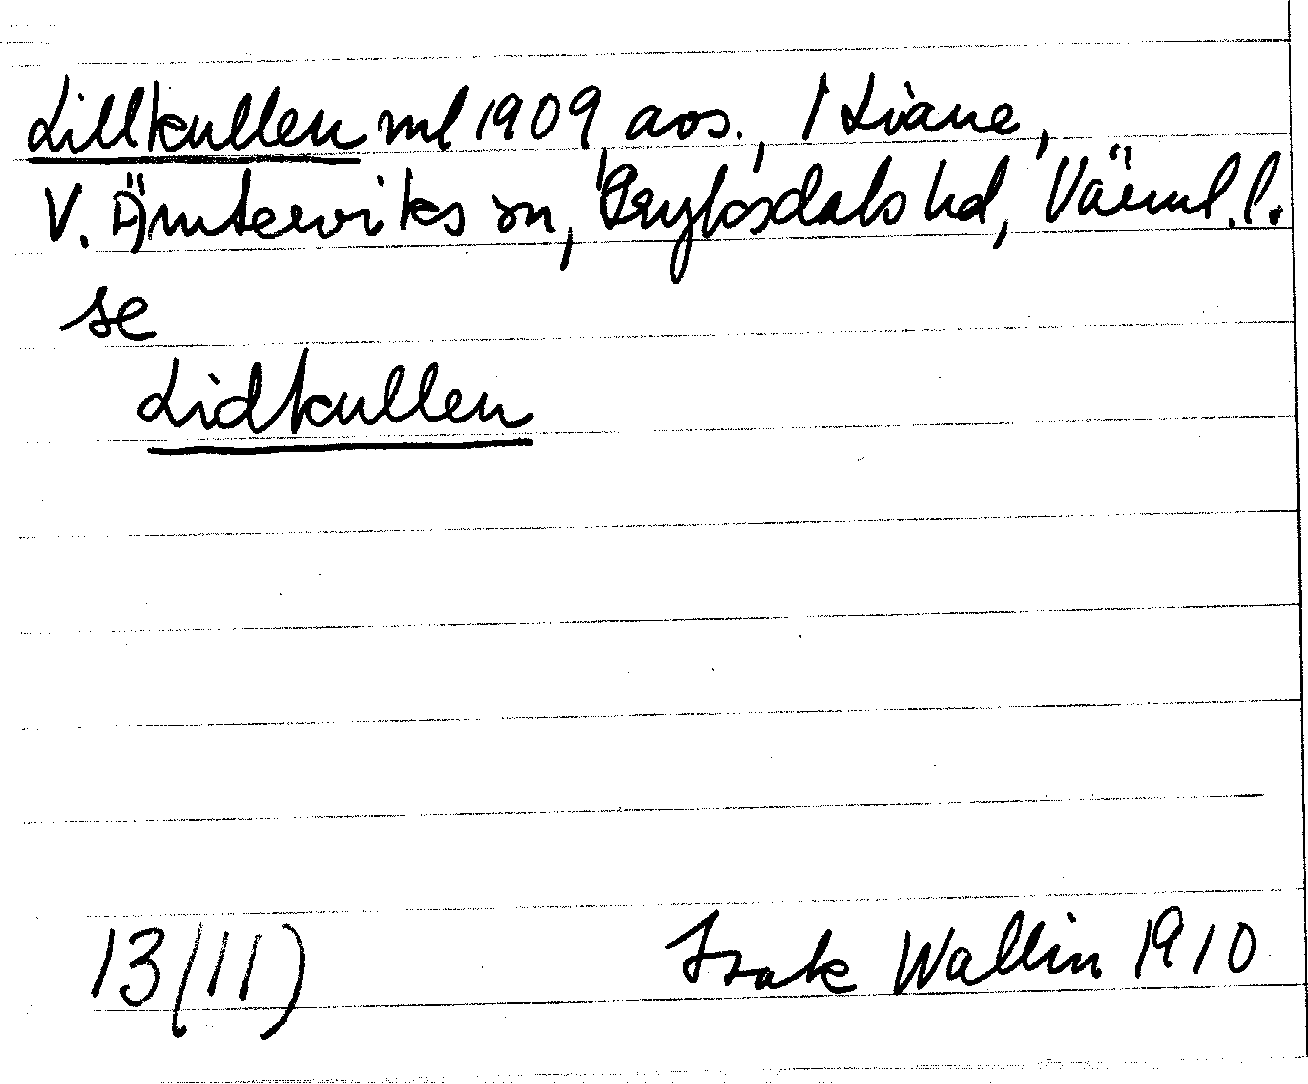 Lillkullen ml 1909 aos., 1 Liane,
V. Ämterviks sn, Fryksdals hd, Värml. l.
se
Lidkullen
13(11) Isak Wallin 1910